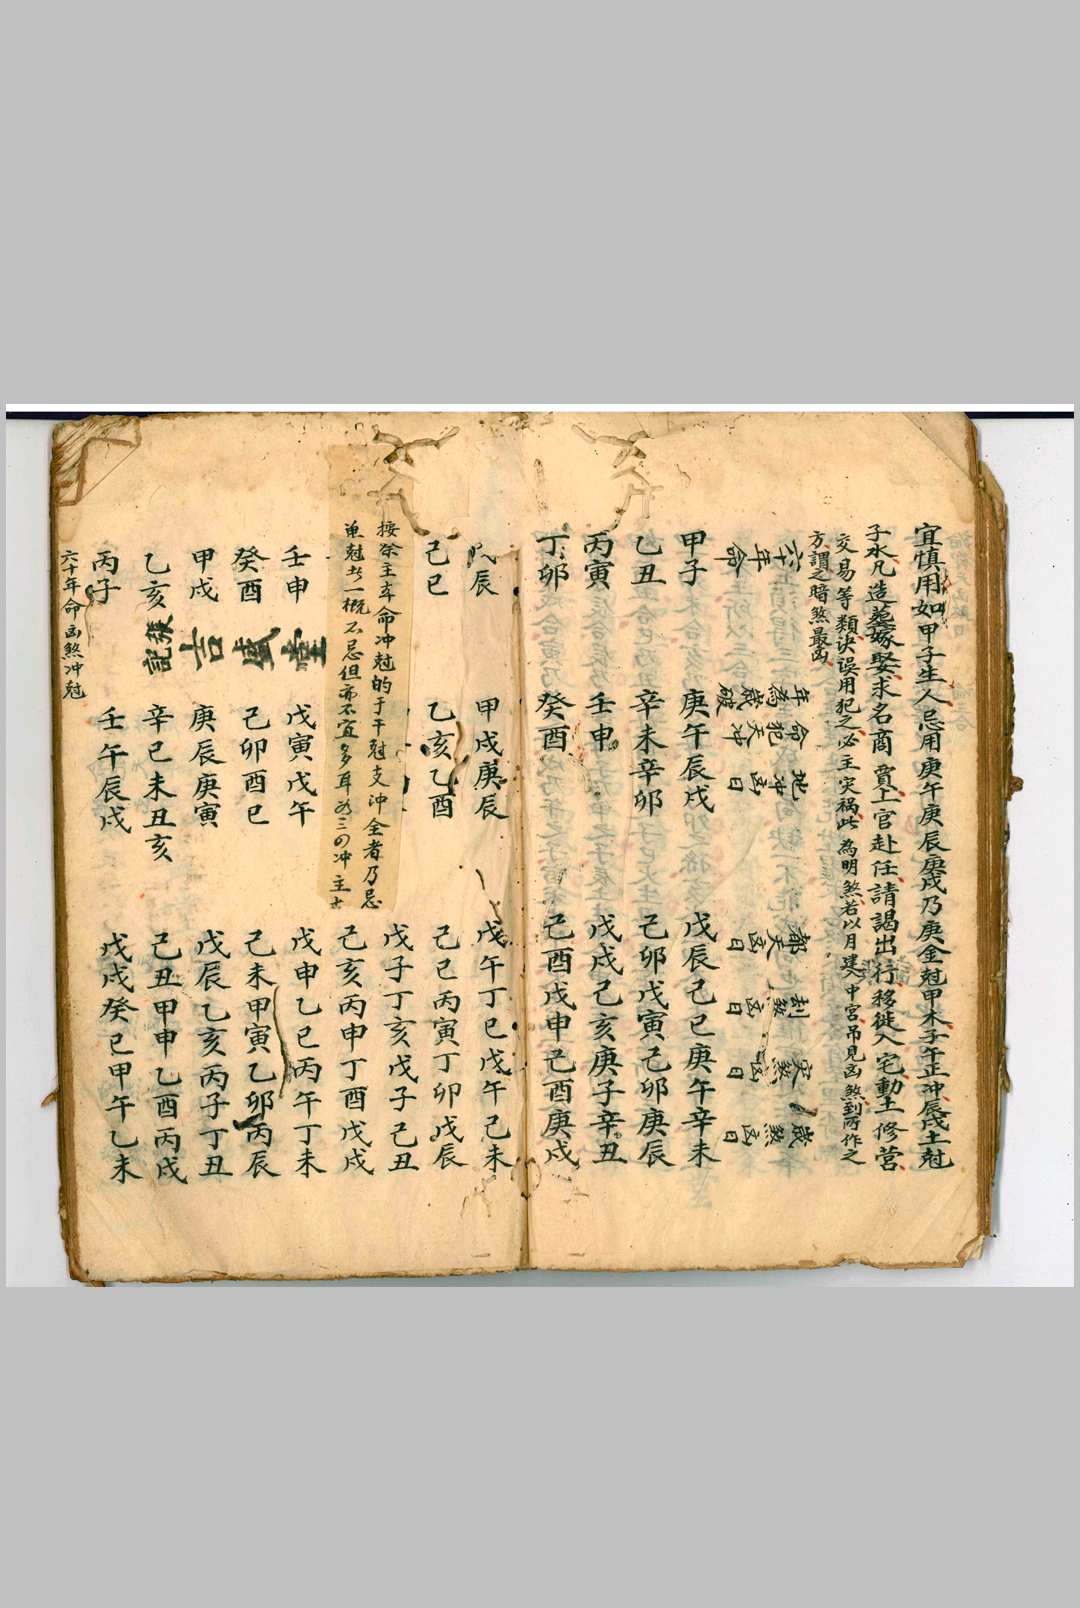 宜慎用如甲子生人忌用庚午庚辰庚戌乃庚金尅甲木子午正冲辰戌土尅
子水凡造葬嫁娶求名商賈上官赴任請謁出行移徙入宅動土修營
交易等類誤用犯之必主灾禍此為明煞若以月建入中宮吊見凶煞到所作之
方謂之暗煞最凶
六十年命
年為歲破
命犯天冲
地冲凶日
都天凶日
刦煞凶日
灾煞凶日
歲煞凶日
甲子 庚午辰戌 戊辰己巳庚午辛未
乙丑 辛未辛卯 己卯戊寅己卯庚辰
丙寅 壬申 戊戌己亥庚子辛丑
丁卯 癸酉 己酉戊申己酉庚戌
戊辰 甲戌庚辰 戊午丁巳戊午己未
己巳 乙亥乙酉 己巳丙寅丁卯戊辰
戊子丁亥戊子己丑
按祭主年命冲尅的于干尅支冲全者乃忌
單尅者一概不忌但亦不宜多耳
己亥丙申丁酉戊戌
壬申 戊寅戊午 戊申乙巳丙午丁未
癸酉 己卯酉巳 己未甲寅乙卯丙辰
甲戌 庚辰庚寅 戊辰乙亥丙子丁丑
乙亥 辛巳未丑亥 己丑甲申乙酉丙戌
丙子 壬午辰戌 戊戌癸巳甲午乙未
張盛吉
記
六十年命凶煞冲尅